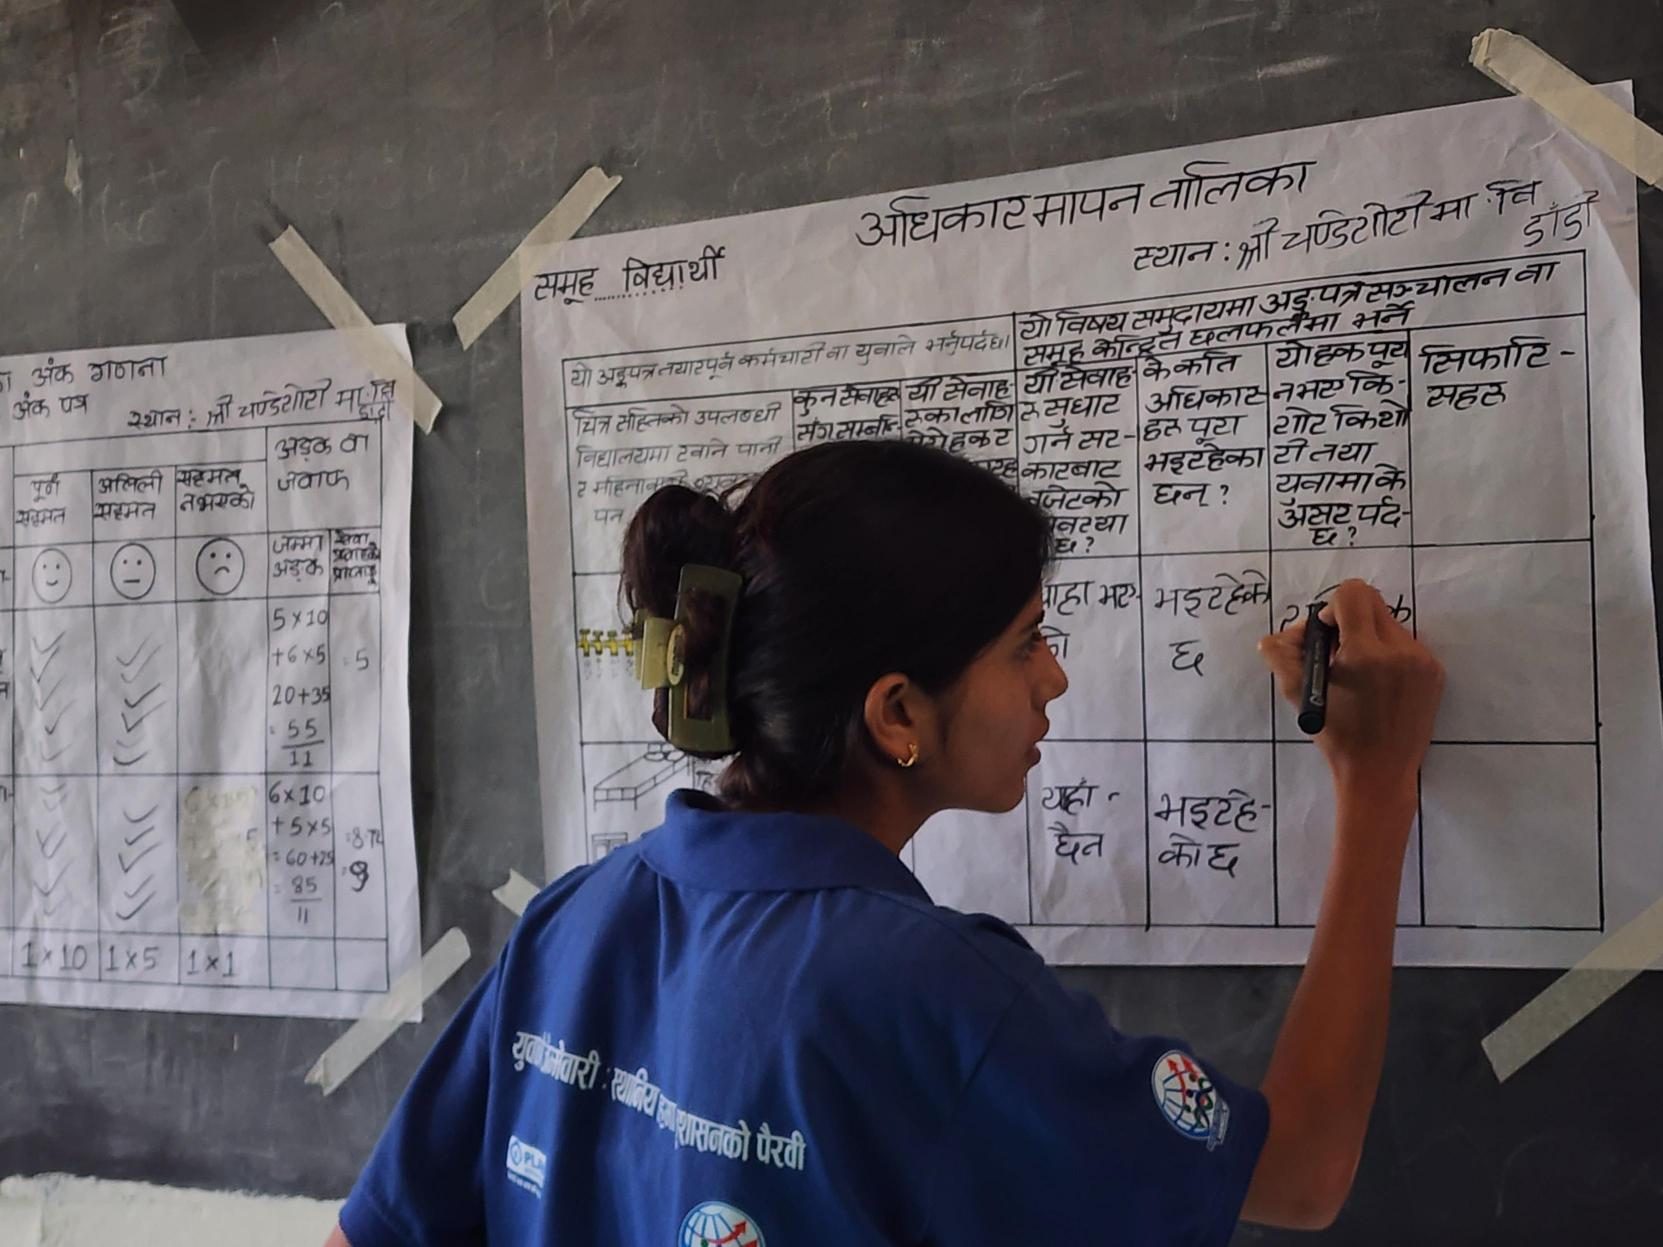 अंक गणना
अंक पत्र
स्थान :- श्री चण्डेशोरी मा.वि
डाँडी
अङ्क वा
जवाफ
पूर्ण
सहमत
अलिली
सहमत
सहमत
नभएको
जम्मा
अङ्क
5 x 10
+6 x 5
20+35
= 55
11
= 5
6 x 10
+ 5 x 5
= 60+25
= 85
11
1 x 10
1 x 5
1 x 1
अधिकार मापन तालिका
समूह विद्यार्थी
स्थान : श्री चण्डेशोरी मा.वि
डाँडी
यो अङ्कपत्र तयार पूर्व कर्मचारी वा युवाले भर्नुपर्दछ।
यो विषय समुदायमा अङ्कपत्र सञ्चालन वा
समूह केन्द्रित छलफलमा भर्ने
चित्र सहितको उपलब्धी
विद्यालयमा खाने पानी
र महिनावारी
पन
कुन सेवाहरु
संग सम्बन्धि
यी सेवाह-
रुका लागि
यी सेवाह-
रु सुधार
गर्न सर-
कारबाट
बजेटको
व्यवस्था
छ?
के कति
अधिकार
हरु पूरा
भइरहेका
छन् ?
यो हक पूरा
नभए कि-
शोर किशो
री तथा
युवामा के
असर पर्द-
छ?
सिफारि-
सहरु
भइरहेको
छ
यहाँ -
छैन
भइरहे-
को छ
युवा जिम्मेवारी : स्थानिय सुशासनको पैरवी